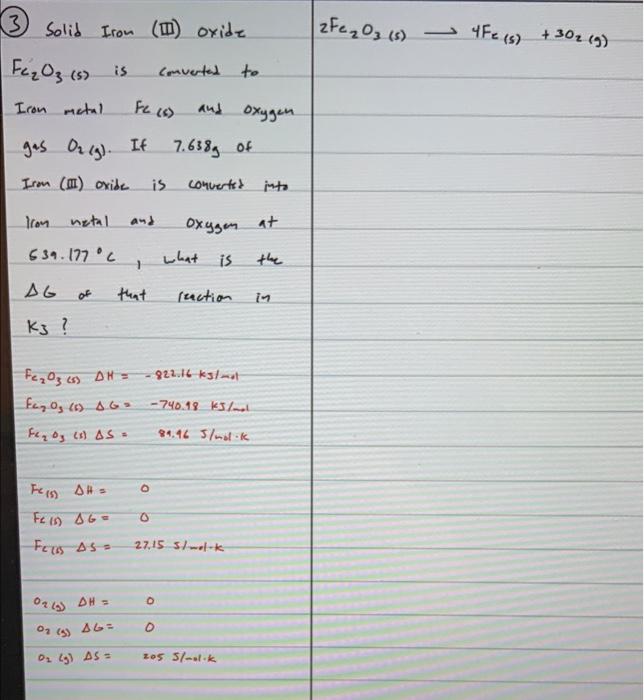 3 Solid Iron (III) oxide
Fe2O3 (s) is converted to
Iron metal Fe (s) and oxygen
gas O2 (g). If 7.638g of
Iron (III) oxide is converted into
Iron metal and oxygen at
639.177 °C, what is the
ΔG of that reaction in
KJ ?
Fe2O3 (s) ΔH = -822.16 KJ/mol
Fe2O3 (s) ΔG = -740.98 KJ/mol
Fe2O3 (s) ΔS = 89.96 J/mol·K
Fe (s) ΔH = 0
Fe (s) ΔG = 0
Fe (s) ΔS = 27.15 J/mol·K
O2 (g) ΔH = 0
O2 (g) ΔG = 0
O2 (g) ΔS = 205 J/mol·K
2Fe2O3 (s) → 4Fe (s) + 3O2 (g)